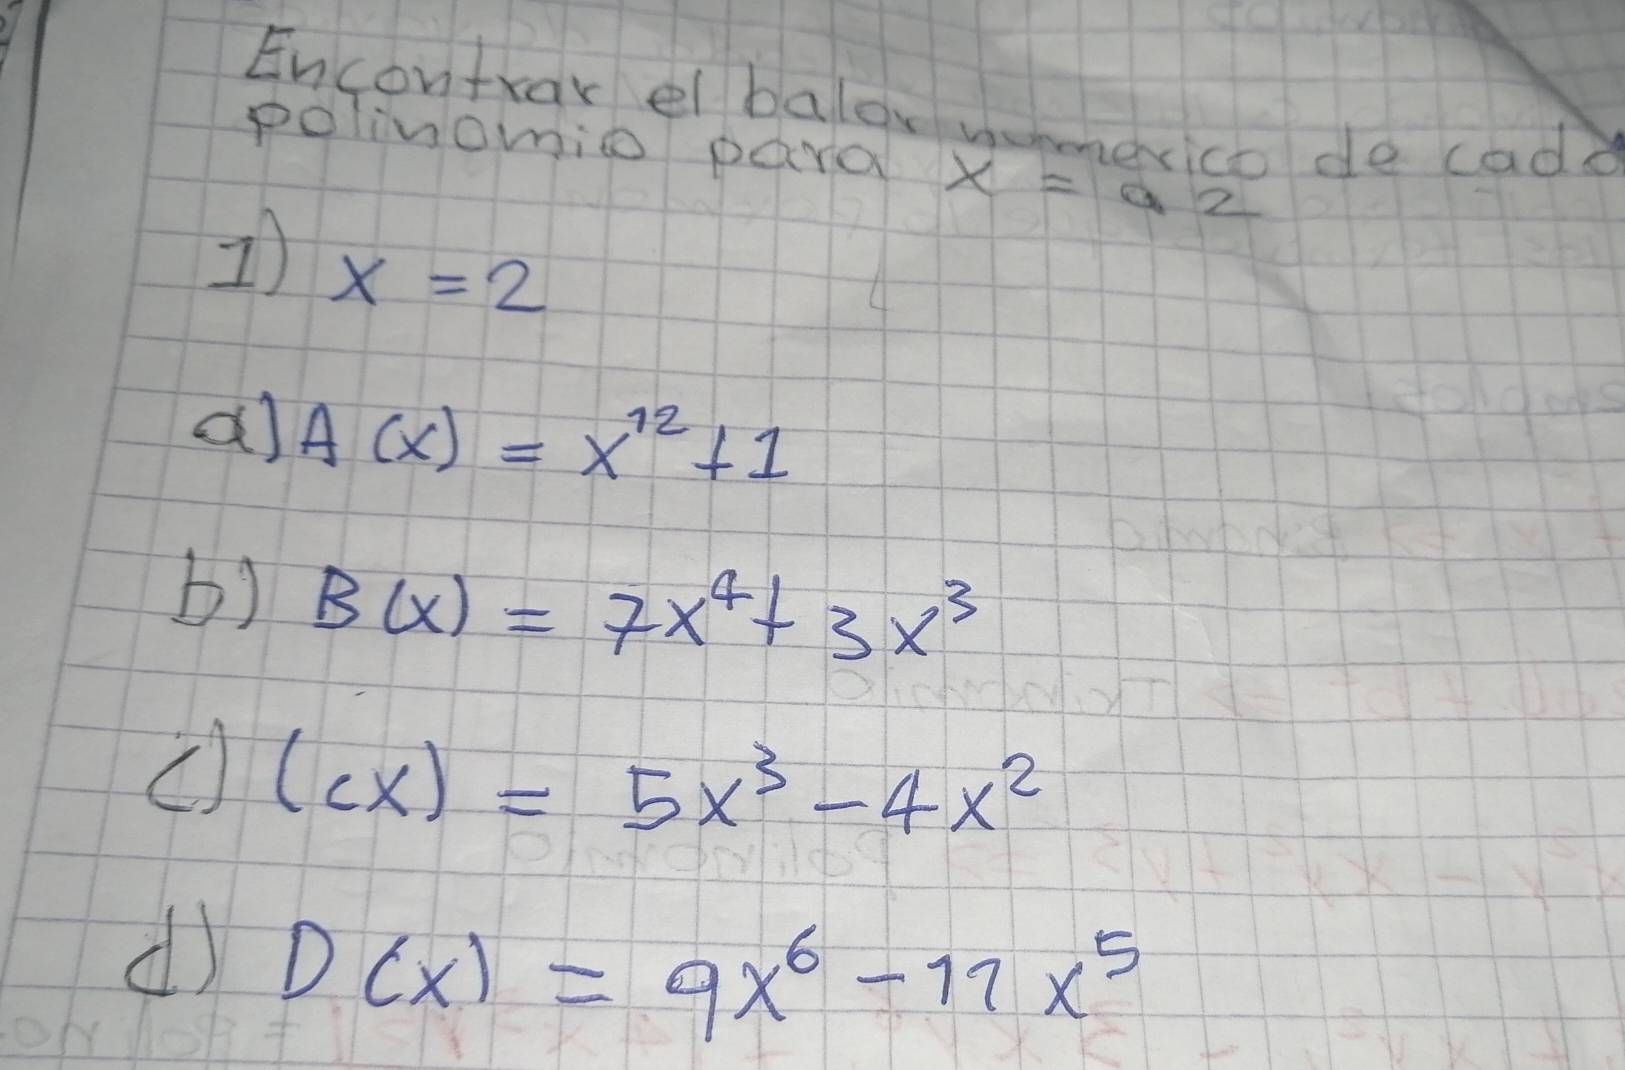 Encontrar el balor numerico de cada
polinomio para x = a 2
1) x = 2
a) A (x) = x¹² + 1
b) B (x) = 7x⁴ + 3x³
c) (cx) = 5x³ - 4x²
d) D (x) = 9x⁶ - 11x⁵